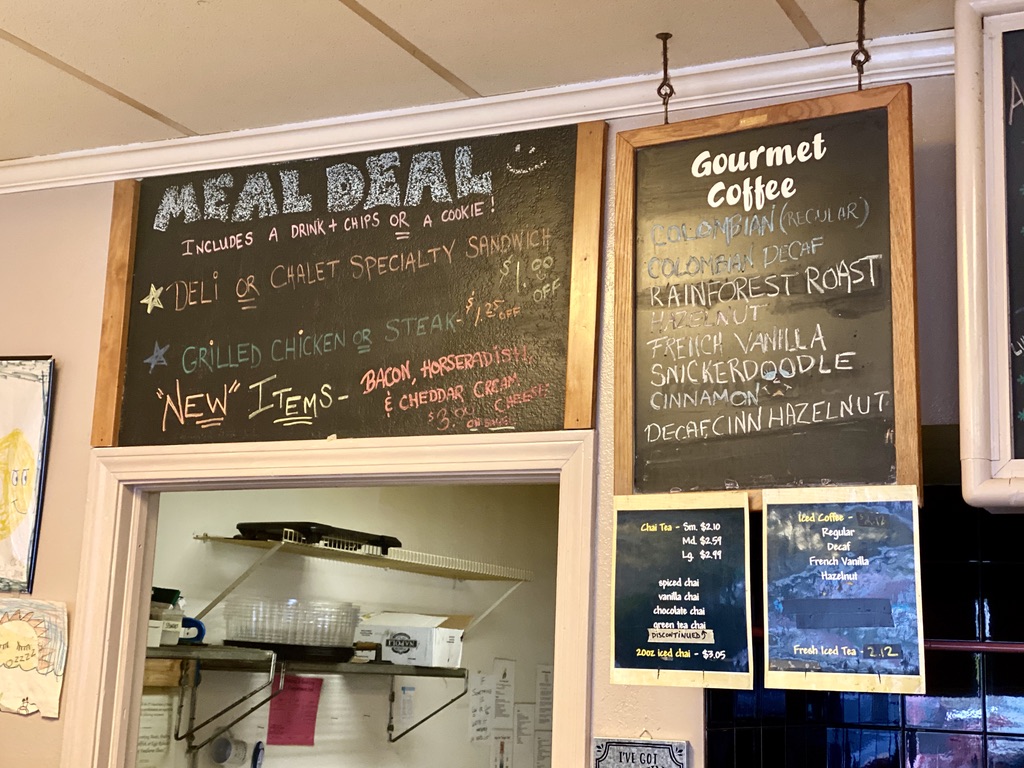 MEAL DEAL
INCLUDES A DRINK + CHIPS OR A COOKIE!
DELI OR CHALET SPECIALTY SANDWICH
$1.00
OFF
GRILLED CHICKEN OR STEAK - $1.25 OFF
"NEW" ITEMS - BACON, HORSERADISH,
& CHEDDAR CREAM
CHEESE
Gourmet
Coffee
COLOMBIAN (REGULAR)
COLOMBIAN DECAF
RAINFOREST ROAST
HAZELNUT
FRENCH VANILLA
SNICKERDOODLE
CINNAMON
DECAF CINN HAZELNUT
Chai Tea - Sm. $2.10
Md. $2.59
Lg. $2.99
spiced chai
vanilla chai
chocolate chai
green tea chai
DISCONTINUED
20oz iced chai - $3.05
Iced Coffee -
Regular
Decaf
French Vanilla
Hazelnut
Fresh Iced Tea - 2.12
I'VE GOT